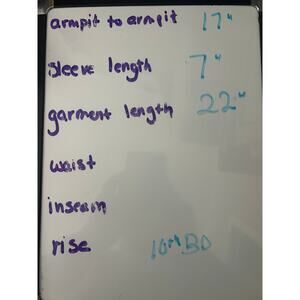 armpit to armpit 17"
Sleeve length 7"
garment length 22"
waist
inseam
rise